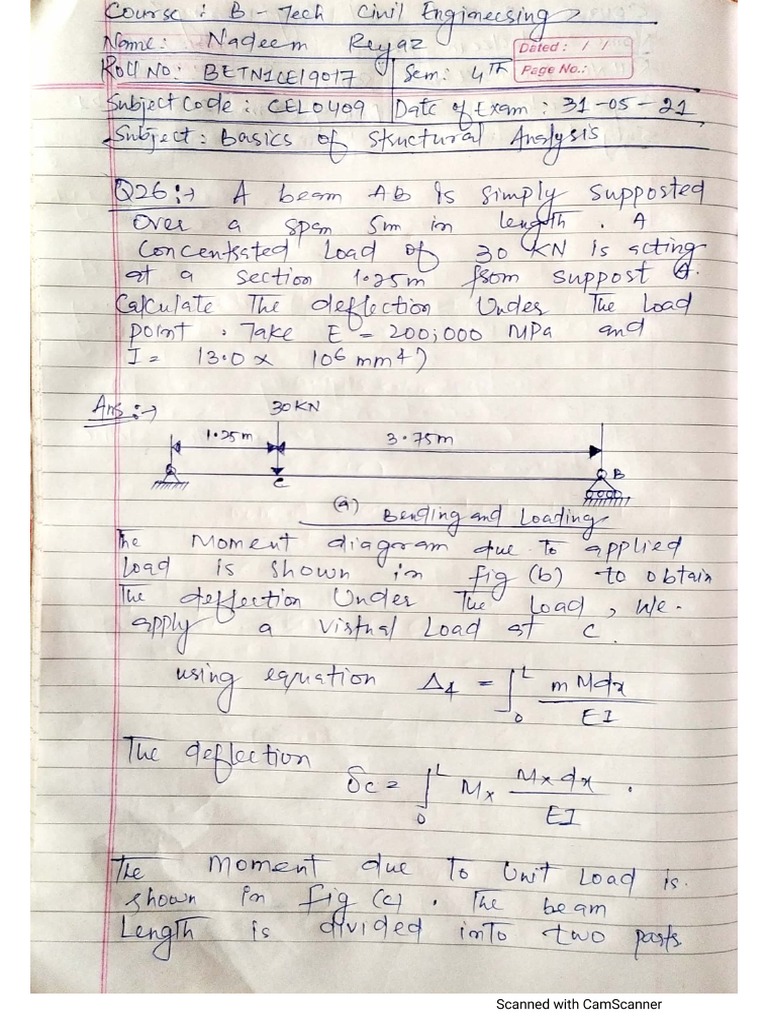 Course : B-Tech Civil Engineering
Name: Nadeem Reyaz
Dated: / /
Roll No: BETN1CE19017 Sem: 4TH
Page No.:
Subject Code: CEL0409 Date of Exam: 31-05-21
Subject: Basics of Structural Analysis
Q26:→ A beam AB is simply supported
over a span 5m in length. A
Concentrated Load of 30 KN is acting
at a section 1.25m from support A.
Calculate The deflection Under The Load
point. Take E = 200,000 MPa and
I = 13.0 x 10⁶ mm4)
Ans:→ 30KN
1.25m 3.75m
C B
(a) Bending and Loading
The Moment diagram due To applied
Load is shown in fig (b) to obtain
The deflection Under The Load, We-
apply a virtual Load at C.
using equation Δ = ∫₀ᴸ mMdx / EI
The deflection
δc = ∫₀ᴸ Mx Mx dx / EI .
The Moment due To Unit Load is.
shown in Fig (c). The beam
Length is divided into two parts
Scanned with CamScanner